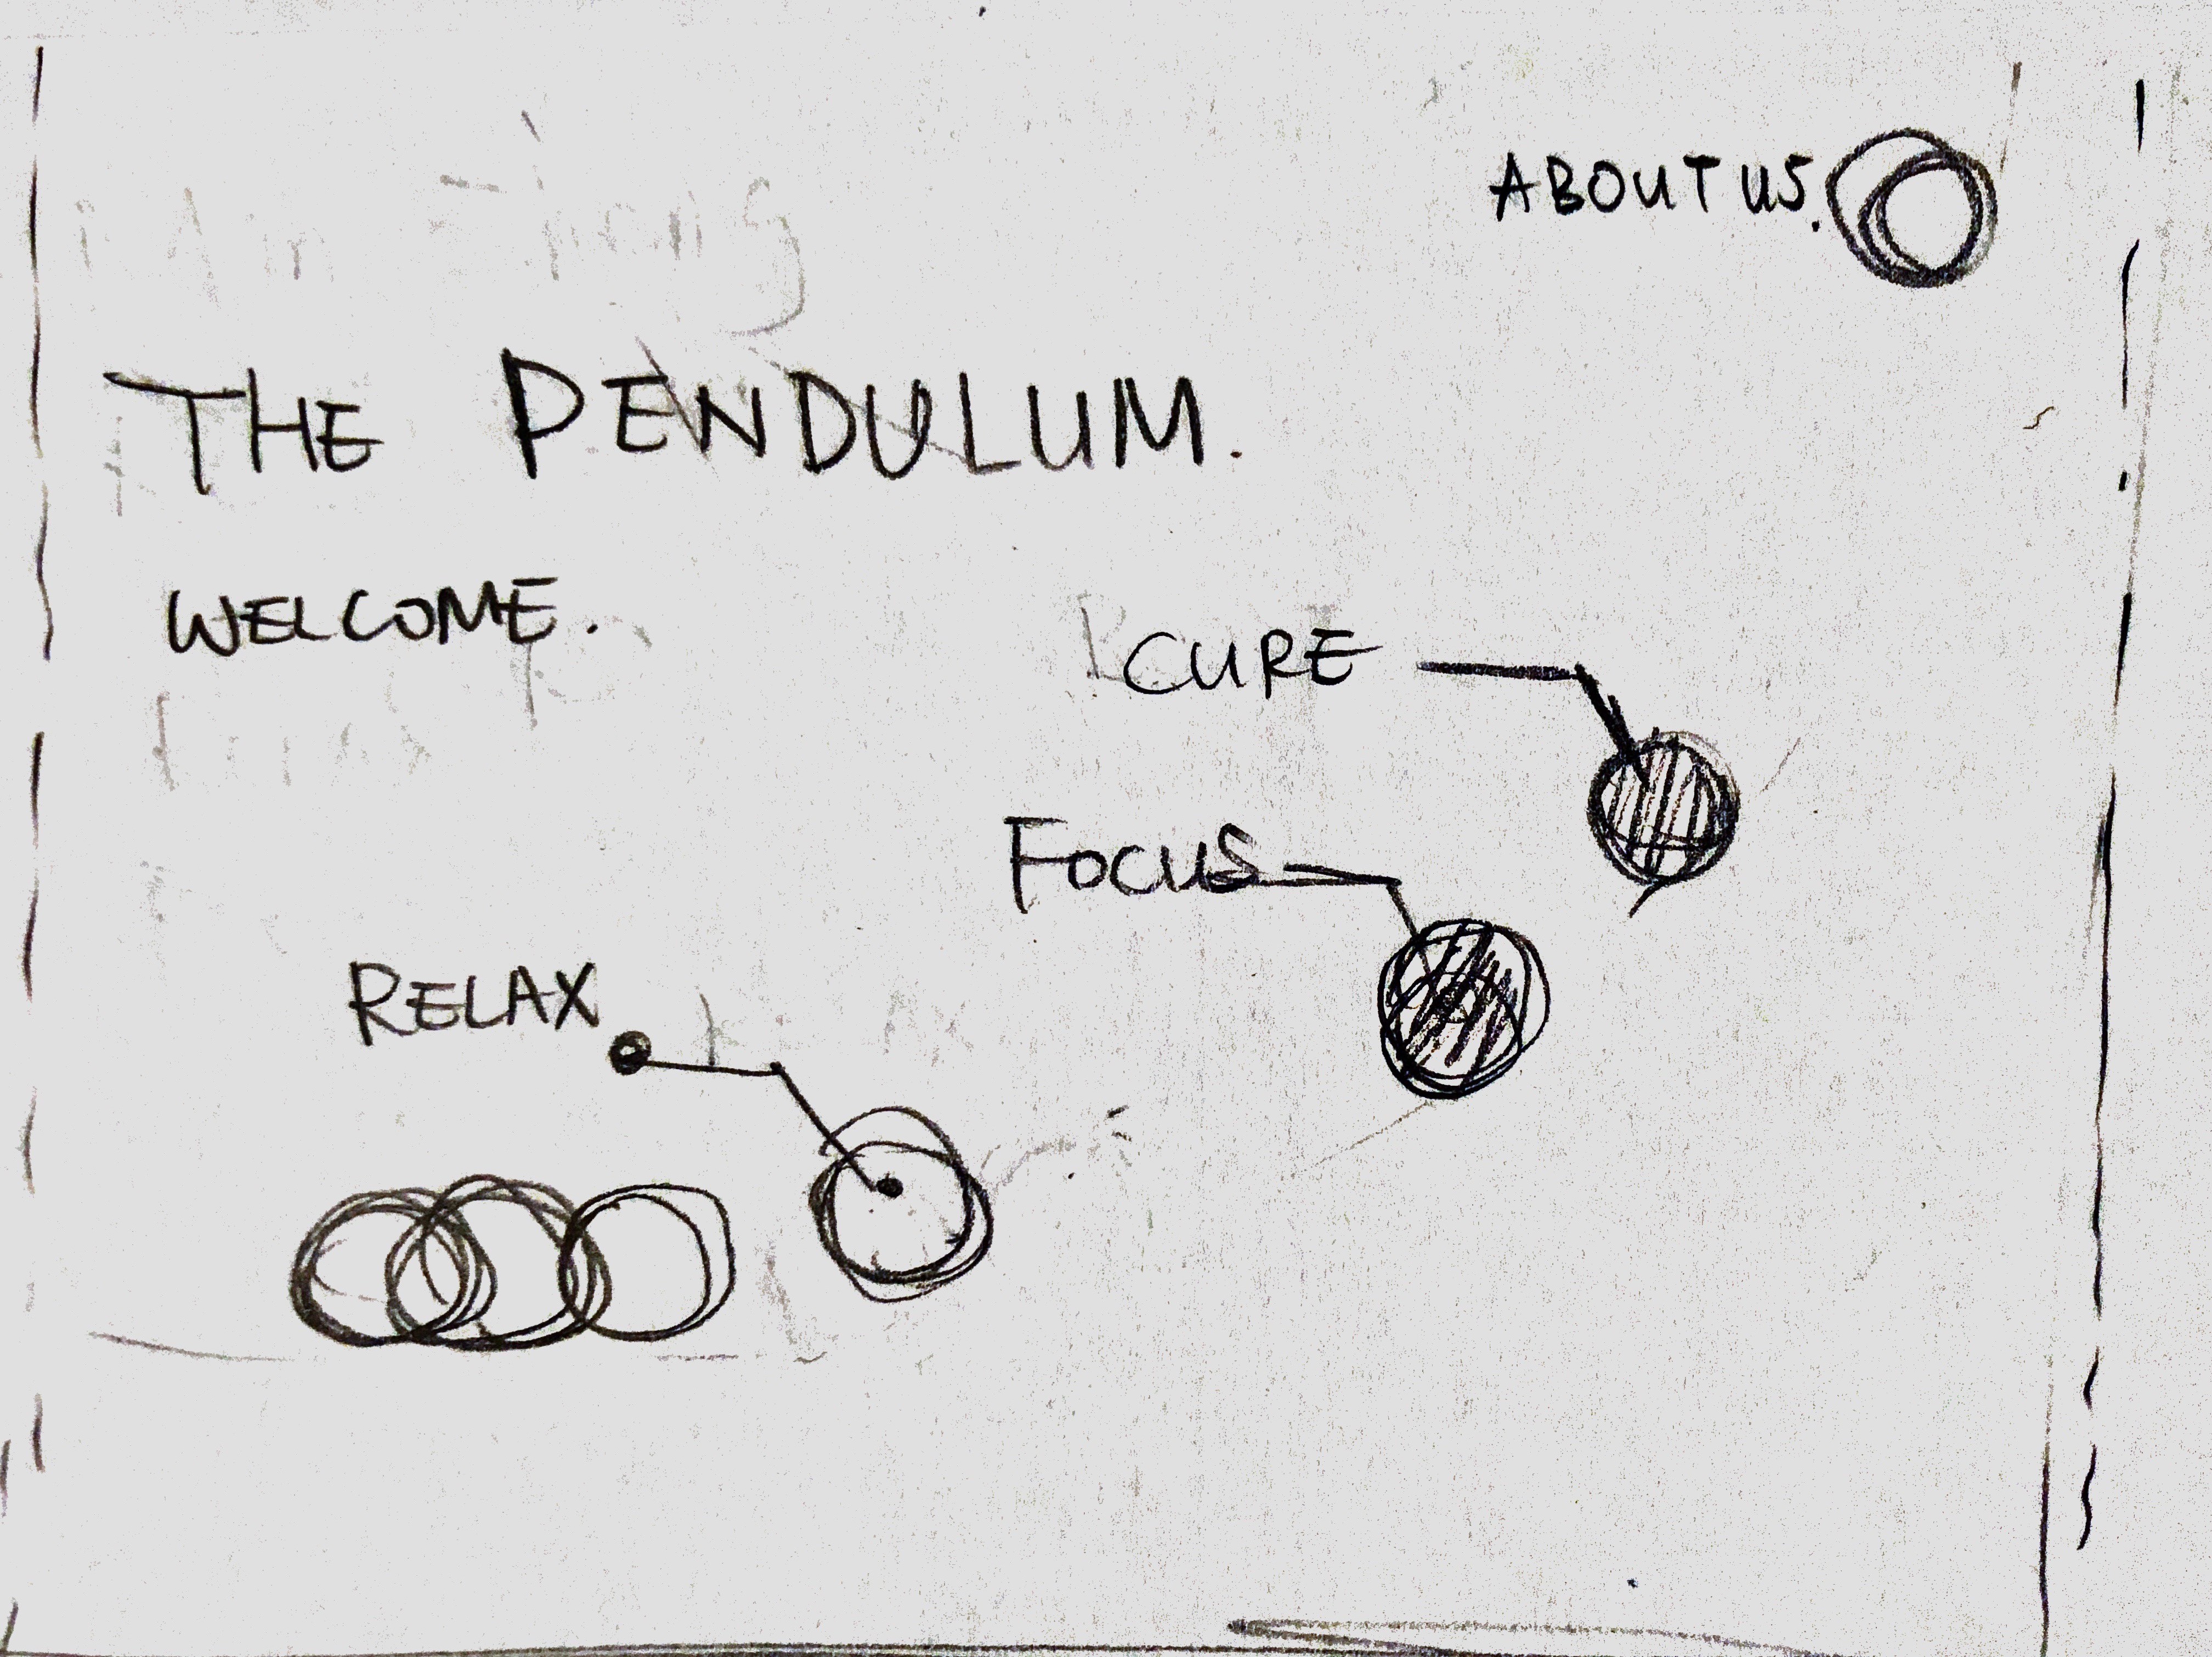 ABOUT US.
THE PENDULUM.
WELCOME.
CURE
FOCUS
RELAX